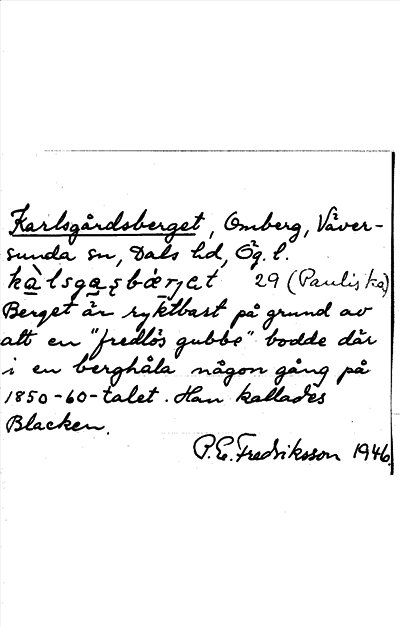 Karlsgårdsberget, Omberg, Väver-
sunda sn, Dals hd, Ög. l.
29 (Pauliska)
Berget är ryktbart på grund av
att en "fredlös gubbe" bodde där
i en berghåla någon gång på
1850-60-talet. Han kallades
Blacken.
P.E. Fredriksson 1946.